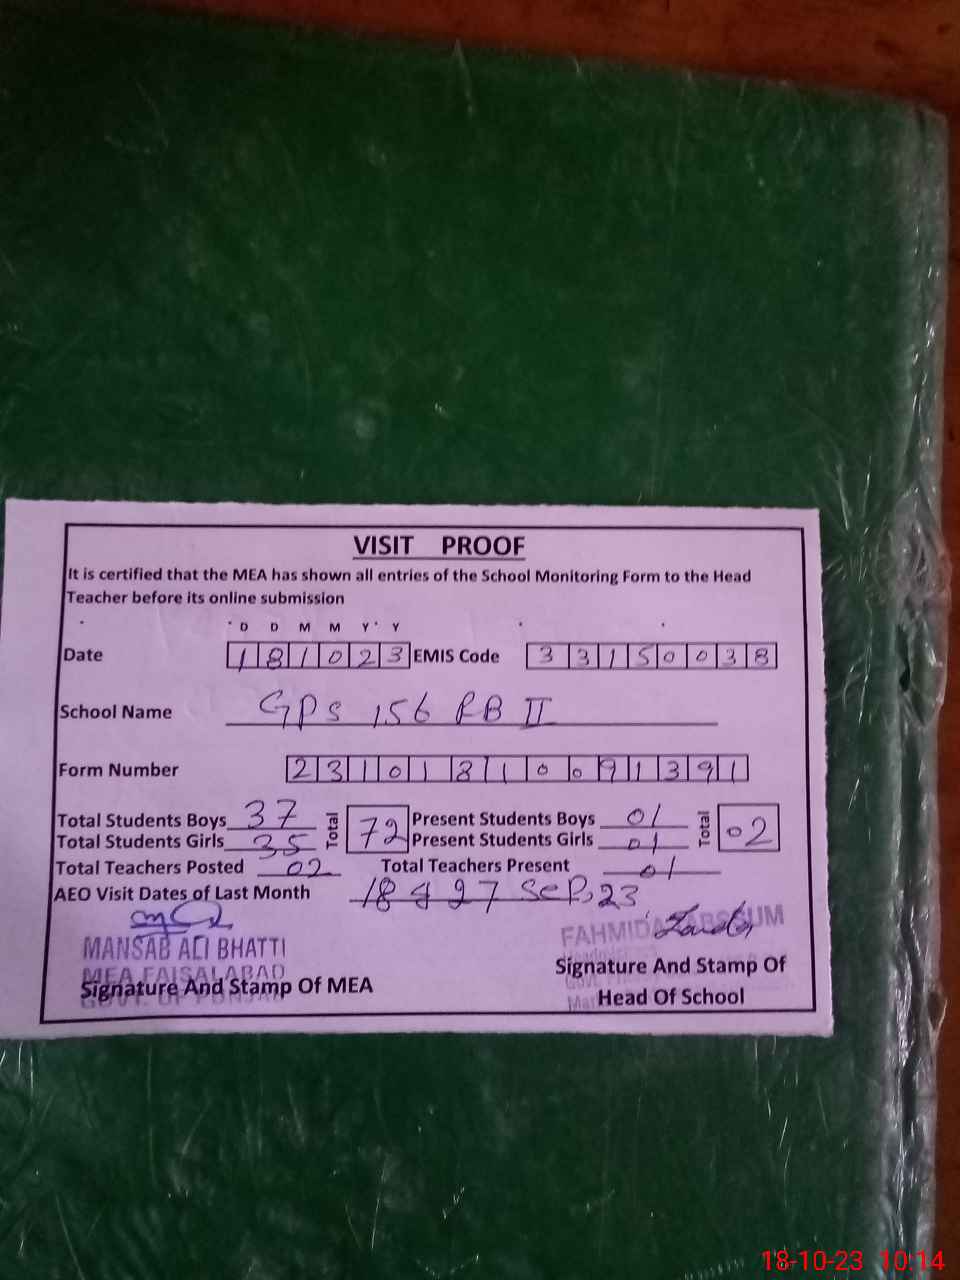 VISIT PROOF
It is certified that the MEA has shown all entries of the School Monitoring Form to the Head
Teacher before its online submission
D D M M Y Y
Date 181023 EMIS Code 33150038
School Name GPS 156 RB II
Form Number 23101810091391
Total Students Boys 37 Total 72 Present Students Boys 01 Total 02
Total Students Girls 35 Present Students Girls 01
Total Teachers Posted 02 Total Teachers Present 01
AEO Visit Dates of Last Month 18 & 27 Sep, 23
MANSAB ALI BHATTI FAHMIDA TABSSUM
MEA FAISALABAD
Signature And Stamp Of MEA Signature And Stamp Of
GOVT. OF PUNJAB Head Of School
18-10-23 10:14